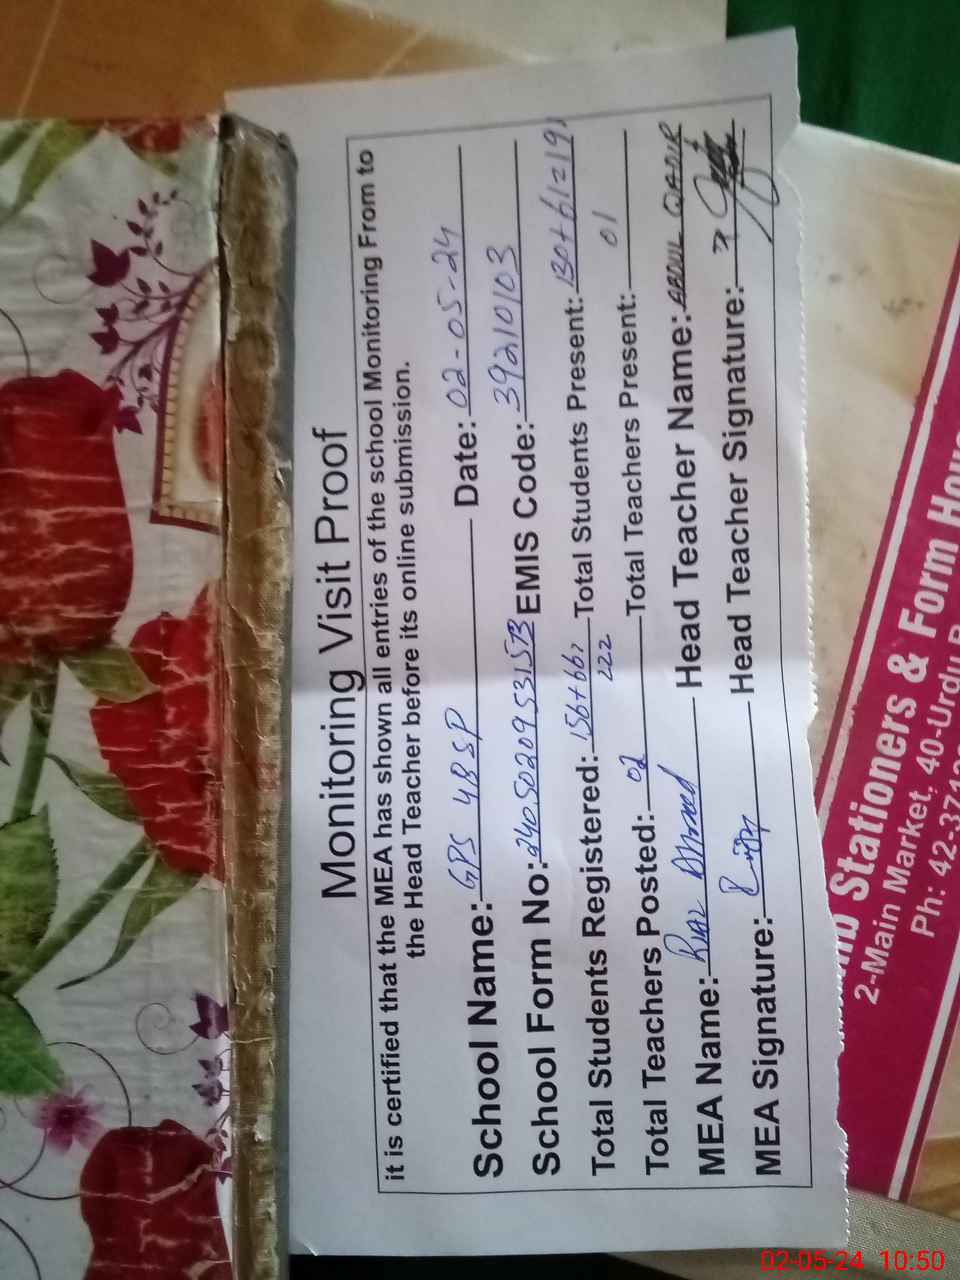 Monitoring Visit Proof
it is certified that the MEA has shown all entries of the school Monitoring From to
the Head Teacher before its online submission.
School Name: GPS 48 SP Date: 02-05-24
School Form No: 24050209531573 EMIS Code: 39210103
Total Students Registered: 156+66= 222 Total Students Present: 130+61=191
Total Teachers Posted: 02 Total Teachers Present: 01
MEA Name: Riaz Ahmad Head Teacher Name: ABDUL QADIR
MEA Signature: Head Teacher Signature:
Stationers & Form House
2-Main Market, 40-Urdu B
Ph: 42-371
02-05-24 10:50